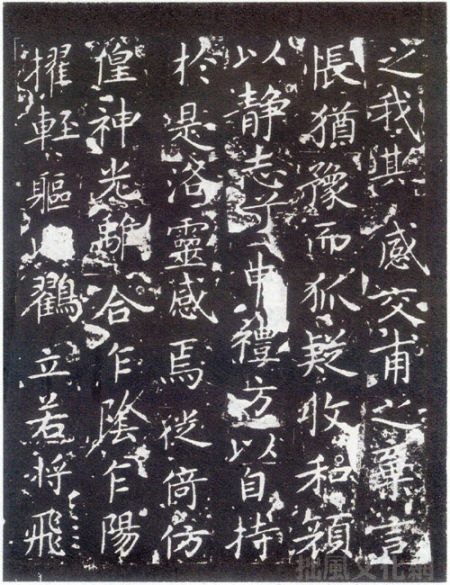 之我欺感交甫之棄言
悵猶豫而狐疑收和顏
以静志兮申禮方以自持
於是洛靈感焉徙倚仿
偟神光離合乍陰乍陽
擢輕軀以鸖立若將飛
拙風文化網